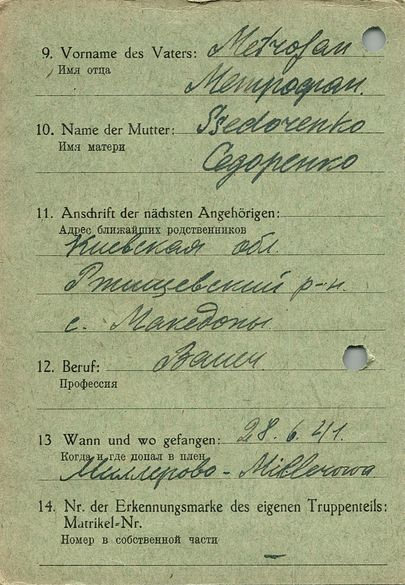 9. Vorname des Vaters: Metrofan
Имя отца
Метрофан.
10. Name der Mutter: Ssedorenko
Имя матери
Седоренко
11. Anschrift der nächsten Angehörigen:
Адрес ближайших родственников
Киевская обл.
Ржищевский р-н.
с. Македоны
12. Beruf: Bauer
Профессия
13 Wann und wo gefangen: 28.6.41.
Когда и где попал в плен
Миллерово - Millerowa
14. Nr. der Erkennungsmarke des eigenen Truppenteils:
Matrikel-Nr.
Номер в собственной части
-